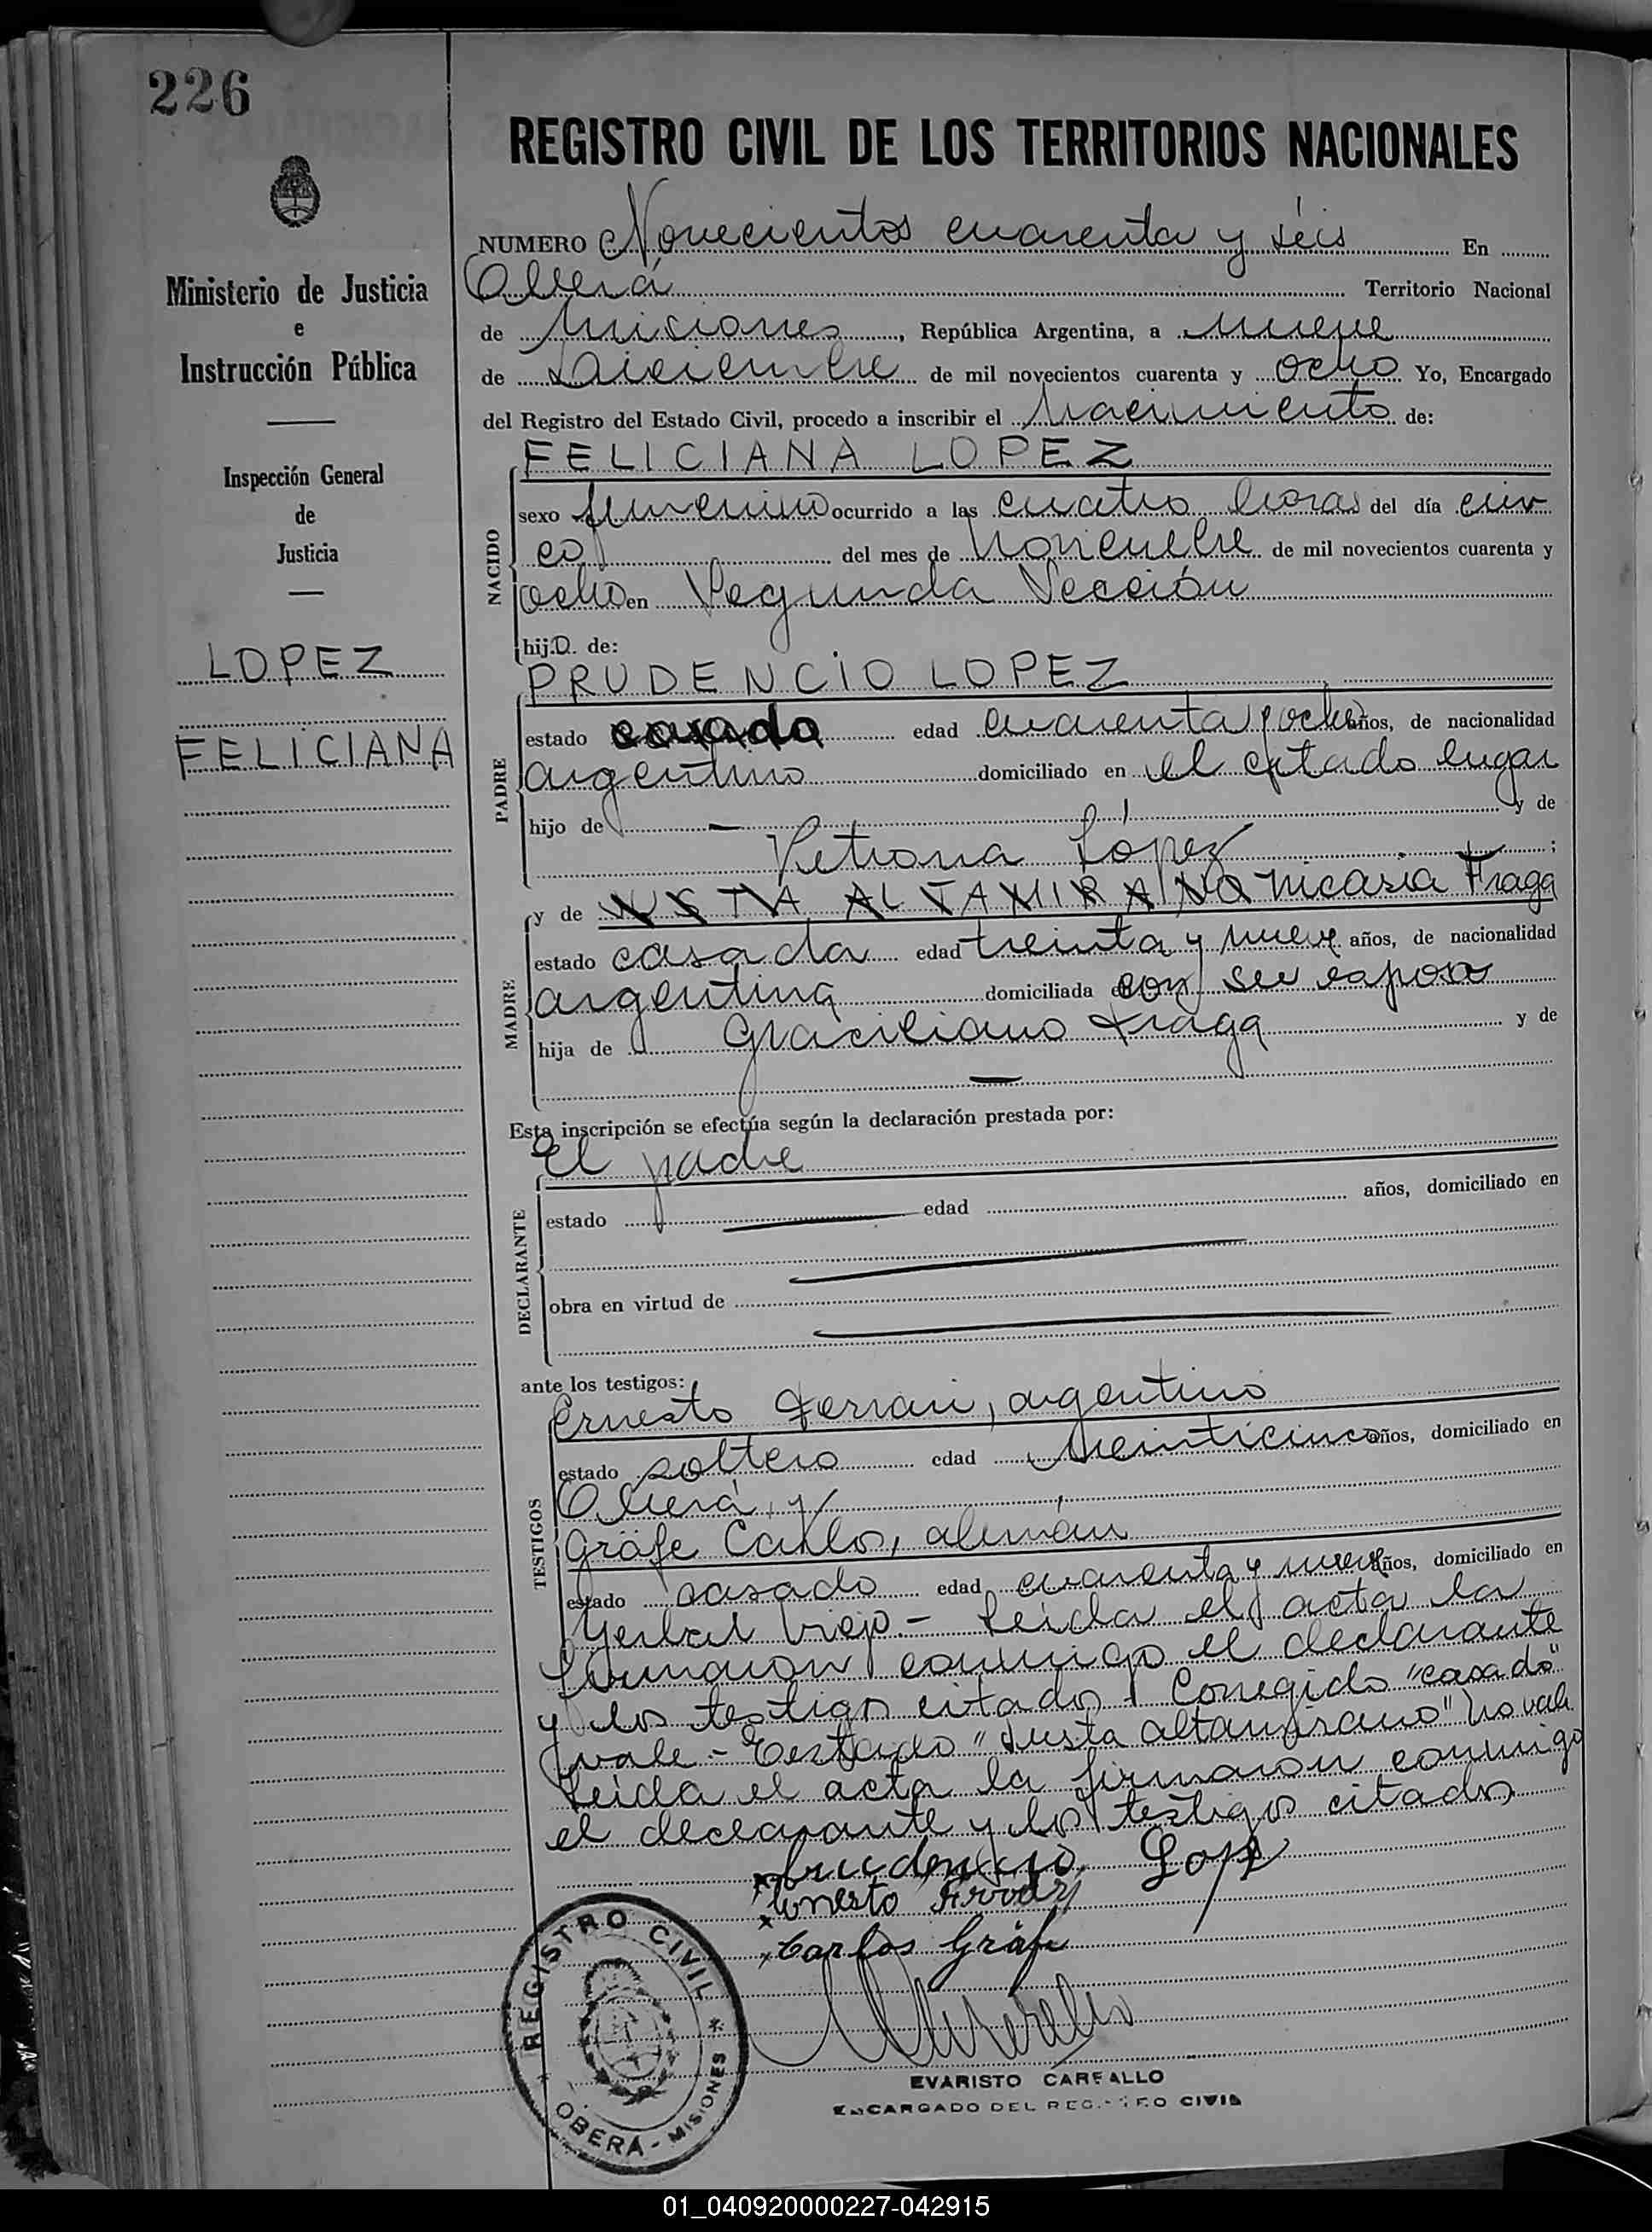 226
Ministerio de Justicia
e
Instrucción Pública
Inspección General
de
Justicia
LOPEZ
FELICIANA
REGISTRO CIVIL DE LOS TERRITORIOS NACIONALES
NUMERO Novecientos cuarenta y séis En
Oberá Territorio Nacional
de Misiones, República Argentina, a nueve
de Diciembre de mil novecientos cuarenta y ocho Yo, Encargado
del Registro del Estado Civil, procedo a inscribir el Nacimiento de:
FELICIANA LOPEZ
NACIDO
sexo femenino ocurrido a las cuatro horas del día cin
co del mes de Noviembre de mil novecientos cuarenta y
ocho en Segunda Sección
hija de:
PRUDENCIO LOPEZ
PADRE
estado casado edad cuarenta y ocho años, de nacionalidad
argentino domiciliado en el citado lugar
hijo de — y de
Petrona López ;
MADRE
y de JUSTA ALTAMIRANO Nicasia Fraga
estado casada edad treinta y nueve años, de nacionalidad
argentina domiciliada con su esposo
hija de Graciliano Fraga y de
—
Esta inscripción se efectúa según la declaración prestada por:
El padre
DECLARANTE
estado edad años, domiciliado en
obra en virtud de
ante los testigos:
TESTIGOS
Ernesto Ferrari, argentino
estado soltero edad veinticinco años, domiciliado en
Oberá y
Gräfe Carlos, alemán
estado casado edad cuarenta y nueve años, domiciliado en
Yerbal Viejo.- Leída el acta la
firmaron conmigo el declarante
y los testigos citados. Corregido "casado"
vale - Testado "Justa Altamirano" no vale
Leída el acta la firmaron conmigo
el declarante y los testigos citados
Prudencio Lopez
Ernesto
Carlos Gräfe
REGISTRO CIVIL
OBERÁ - MISIONES
EVARISTO CARFALLO
ENCARGADO DEL REGISTRO CIVIL
01_040920000227-042915